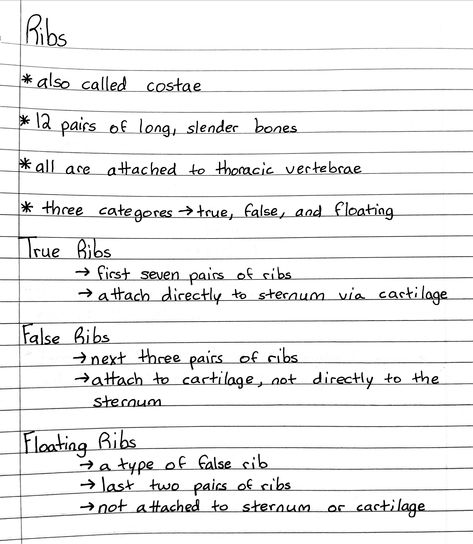 Ribs
* also called costae
* 12 pairs of long, slender bones
* all are attached to thoracic vertebrae
* three categores → true, false, and floating
True Ribs
→ first seven pairs of ribs
→ attach directly to sternum via cartilage
False Ribs
→ next three pairs of ribs
→ attach to cartilage, not directly to the
sternum
Floating Ribs
→ a type of false rib
→ last two pairs of ribs
→ not attached to sternum or cartilage